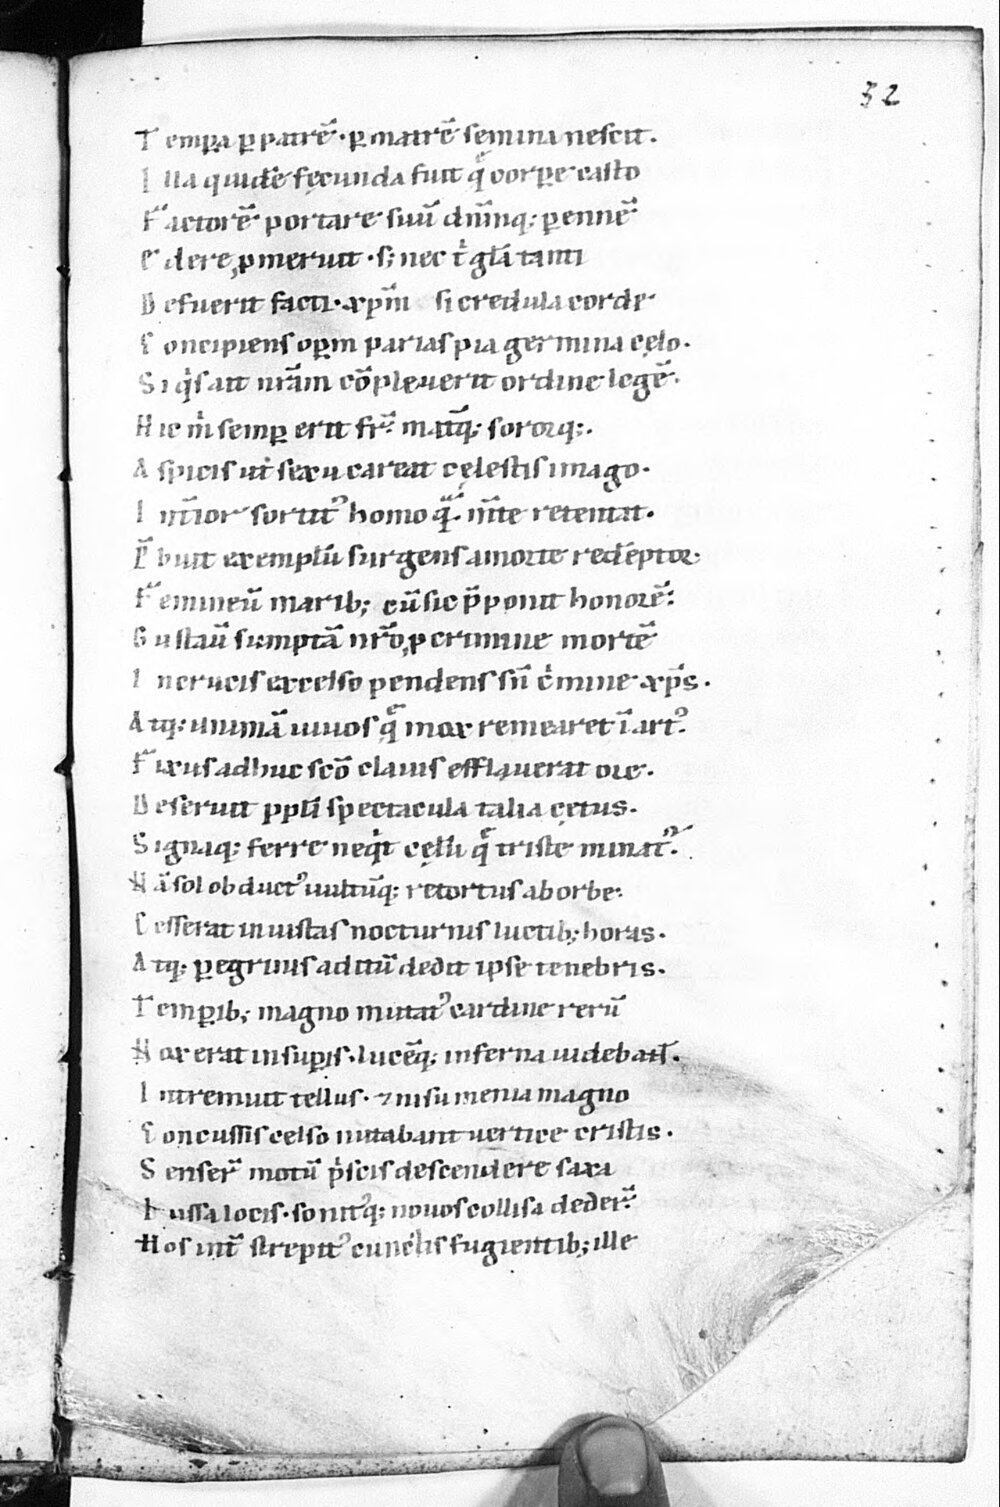 32
Tempa ꝑ patrē · ꝑ matrē semina nescit.
Illa quidē fęcunda fuit q̄ corpe casto
Factorē portare suū dn̄mq; ꝑennē
Edere ꝓmeruit · s; nec t̾ glā tanti
Defuerit facti · xp̄m si credula corde
Concipiens opm parias pia germina cęlo.
Siq̾s ait nr̄am cōpleuerit ordine legē.
Hic m̾ semꝑ erit fr̄ matq̄; sororq;.
Aspicis ut sexu careat cęlestis imago.
Int̄ior sortit᾽ homo q̄ m̄te retentat.
P̄buit exemplū surgens a morte redēptor.
Femineū marib; cū sic p̄ponit honorē.
Gustaū sumptā nr̄o ꝓ crimine mortē
In crucis excelso pendens sn̄ c̾mine xp̄s.
Atq; animā uiuos q̄ mox remearet ī art᾽.
Fixus adhuc scō clauis efflauerat ore.
Deseruit ppl̄i spectacula talia cętus.
Signaq; ferre neq̾t cęlū q̄ triste minat᾽.
Nā sol obduct᾽ uultūq; retortus ab orbe.
Cesserat inuistas nocturnis luctib; horas.
Atq; ꝑegrinus aditū dedit ipse tenebris.
Temꝑib; magno mutat᾽ cardine rerū
Nox erat in suꝑis · lucēq; inferna uidebant.
Intremuit tellus · ⁊ nisu menia magno
Concussis celso nutabant uertice cristis.
Senser̄ motū p̾scis descendere saxa
Iussa locis · sonit᾽q; nouos collisa deder̄
Hos int̄ strepit᾽ cunctis fugientib; ille